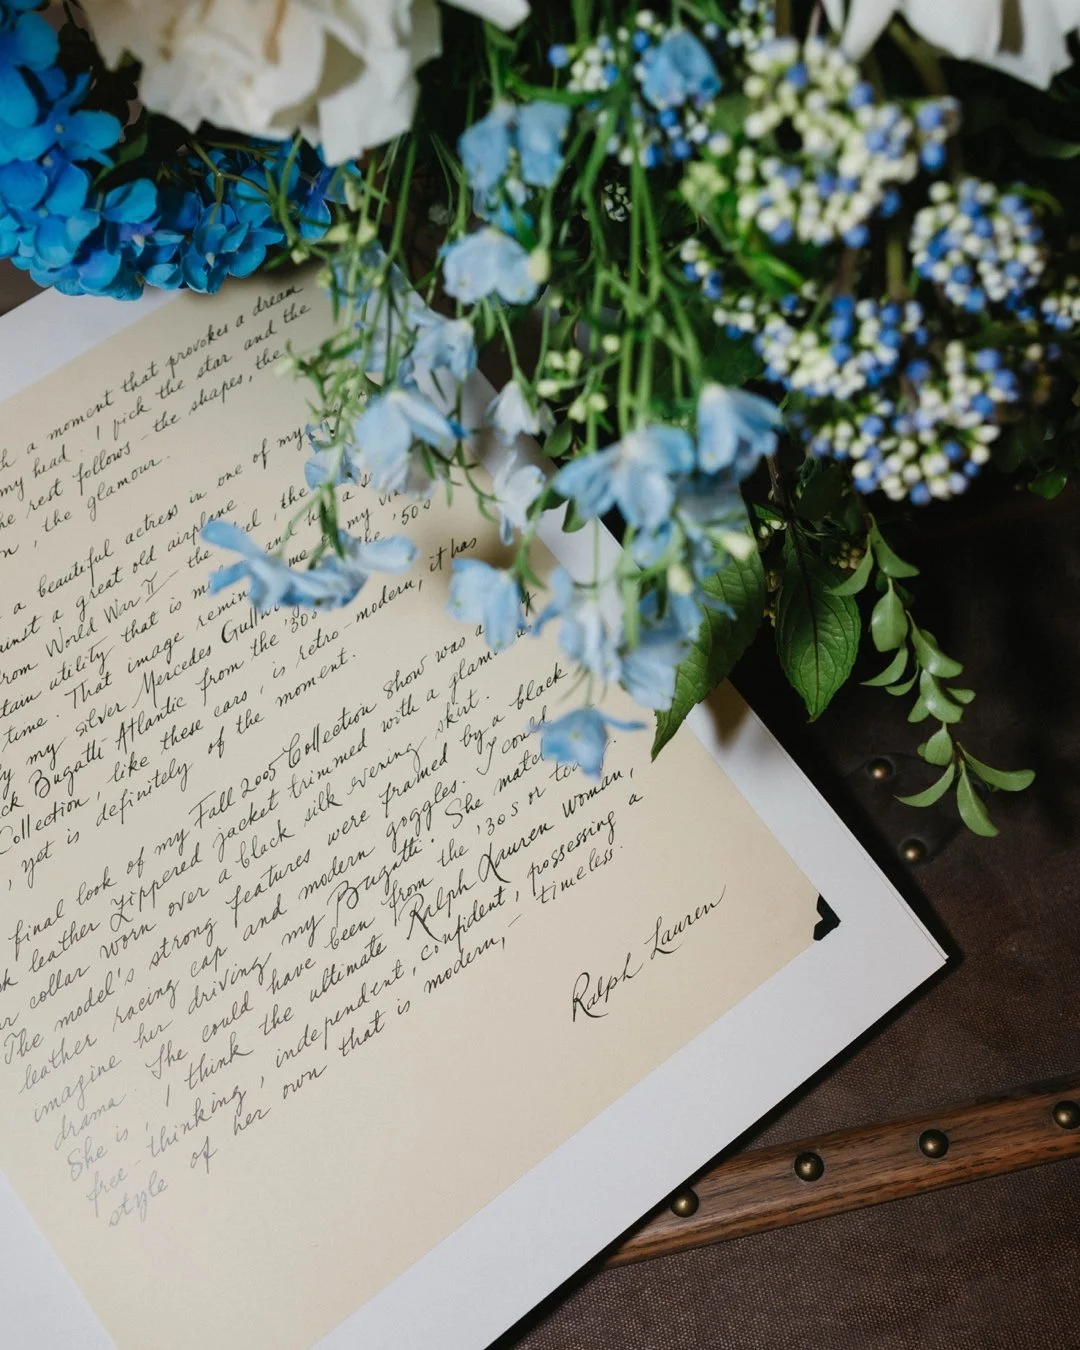 a moment that provokes a dream
my head. I pick the star and the
rest follows - the shapes, the
, the glamour.
a beautiful actress in one of my
against a great old airplane
from World War II - the
utility that is
time. That image
my silver Mercedes
Bugatti Atlantic from the '30s
Collection, like these cars, is retro-modern, it has
, yet is definitely of the moment.
final look of my Fall 2005 Collection show was a
leather zippered jacket trimmed with a
collar worn over a black silk evening skirt.
The model's strong features were framed by a black
leather racing cap and modern goggles. I could
imagine her driving my Bugatti. She
drama. She could have been from the '30s or
She is, I think the ultimate Ralph Lauren woman,
free-thinking, independent, confident, possessing a
style of her own that is modern, - timeless.
Ralph Lauren